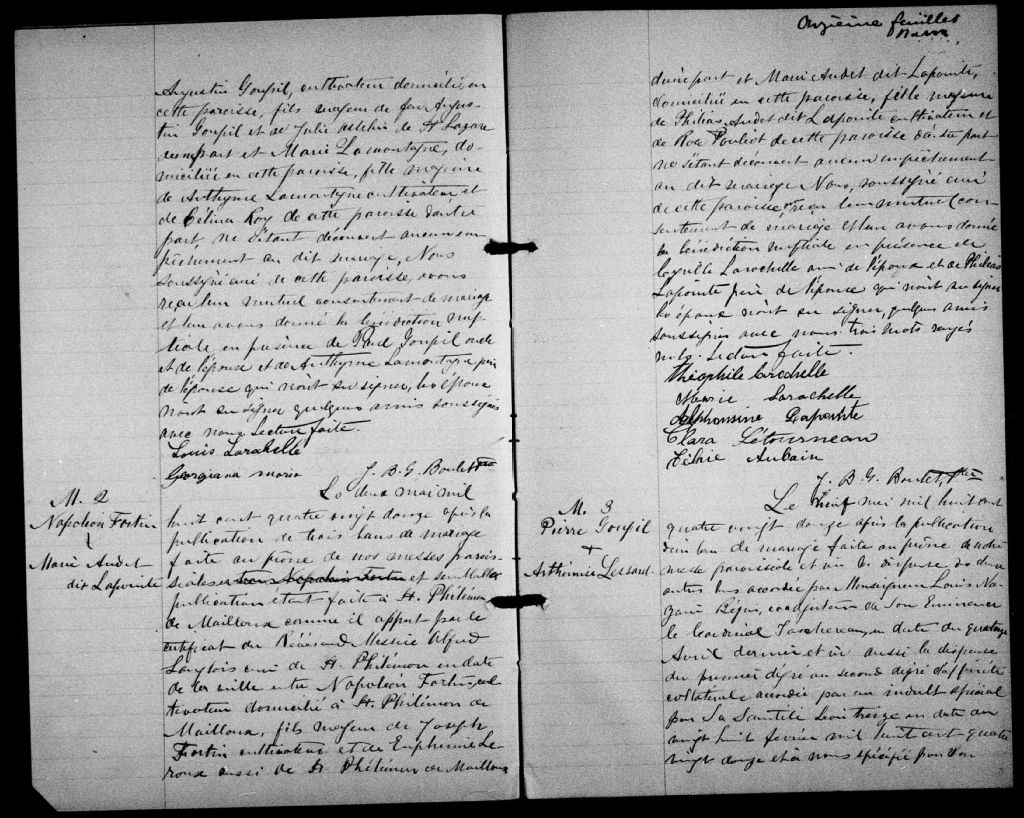 Augustin Goupil, cultivateur domicilié en
cette paroisse, fils majeur de feu Augus-
tin Goupil et de Julie de St Lazare
d'une part et Marie Lamontagne, do-
miciliée en cette paroisse, fille mineure
de Anthyme Lamontagne cultivateur et
de Célina Roy de cette paroisse d'autre
part, ne s'étant découvert aucun em-
pêchement au dit mariage, Nous
soussigné curé de cette paroisse, avons
reçu leur mutuel consentement de mariage
et leur avons donné la bénédiction nup-
tiale en présence de Paul Goupil oncle
et de l'épouse et de Anthyme Lamontagne père
de l'épouse qui n'ont su signer, les époux
n'ont su signer quelques amis soussignés
avec nous Lecture faite.
Louis Larochelle
Georgiana morin
J. B. G. Boulet Ptre
M. 2
Napoléon Fortin
&
Marie Audet
dit Lapointe
Le deux mai mil
huit cent quatre vingt douze après la
publication de trois bans de mariage
faite au prône de nos messes parois-
siales entre Napoléon Fortin et semblable
publication étant faite à St. Philémon
de Mailloux comme il appert par le
certificat du Révérend Messire Alfred
Langlois curé de St. Philémon en date
de ler mille entre Napoléon Fortin, cul
tivateur domicilié à St. Philémon de
Mailloux, fils majeur de Joseph
Fortin cultivateur et de Euphémie Le-
roux aussi de St Philémon de Mailloux
Onzième feuillet
d'une part et Marie Audet dit Lapointe,
domiciliée en cette paroisse, fille mineure
de Philias Audet dit Lapointe cultivateur et
de Rose Pouliot de cette paroisse d'autre part
ne s'étant découvert aucun empêchement
au dit mariage Nous, soussigné curé
de cette paroisse avons reçu leur mutuel con-
sentement de mariage et leur avons donné
la bénédiction nuptiale en présence de
Larochelle ami de l'époux et de Philias
Lapointe père de l'épouse qui n'ont su signer
les époux n'ont su signer, quelques amis
soussignés avec nous trois mots rayés
nuls. Lecture faite.
Théophile Larochelle
Marie Larochelle
Alphonsine Lapointe
Clara Létourneau
Aubain
J. B. G. Boulet, Ptre
M. 3
Pierre Goupil
+
Arthémise Lessard
Le neuf mai mil huit cent
quatre vingt douze après la publication
d'un ban de mariage faite au prône de notre
messe paroissiale et vu la dispense de deux
autres bans accordée par Monseigneur Louis Na-
zaire Bégin, coadjuteur de Son Eminence
le Cardinal Taschereau, en date du quatorze
Avril dernier et vu aussi la dispense
du premier dégré au second dégré d'affinité
collatérale accordée par un indult spécial
par Sa Sainteté Léon treize en date du
vingt huit février mil huit cent quatre
vingt douze et à nous spécifié par Son